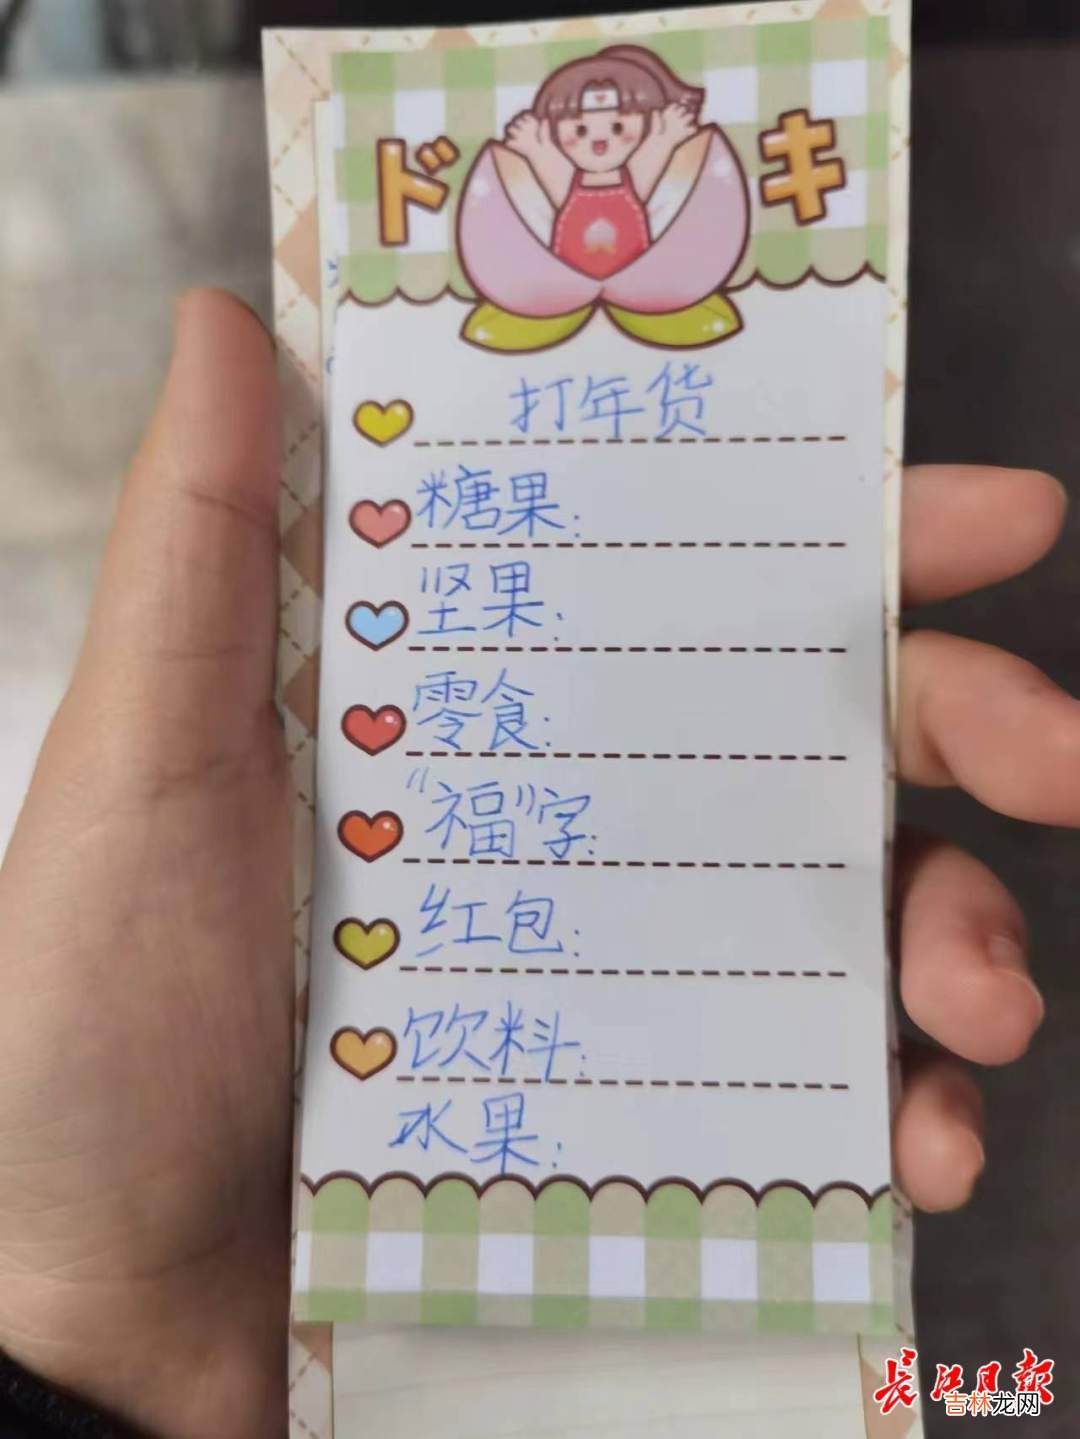 ドキ
打年货
糖果:
坚果:
零食:
“福”字:
红包:
饮料:
水果:
长江日报
吉林龙网